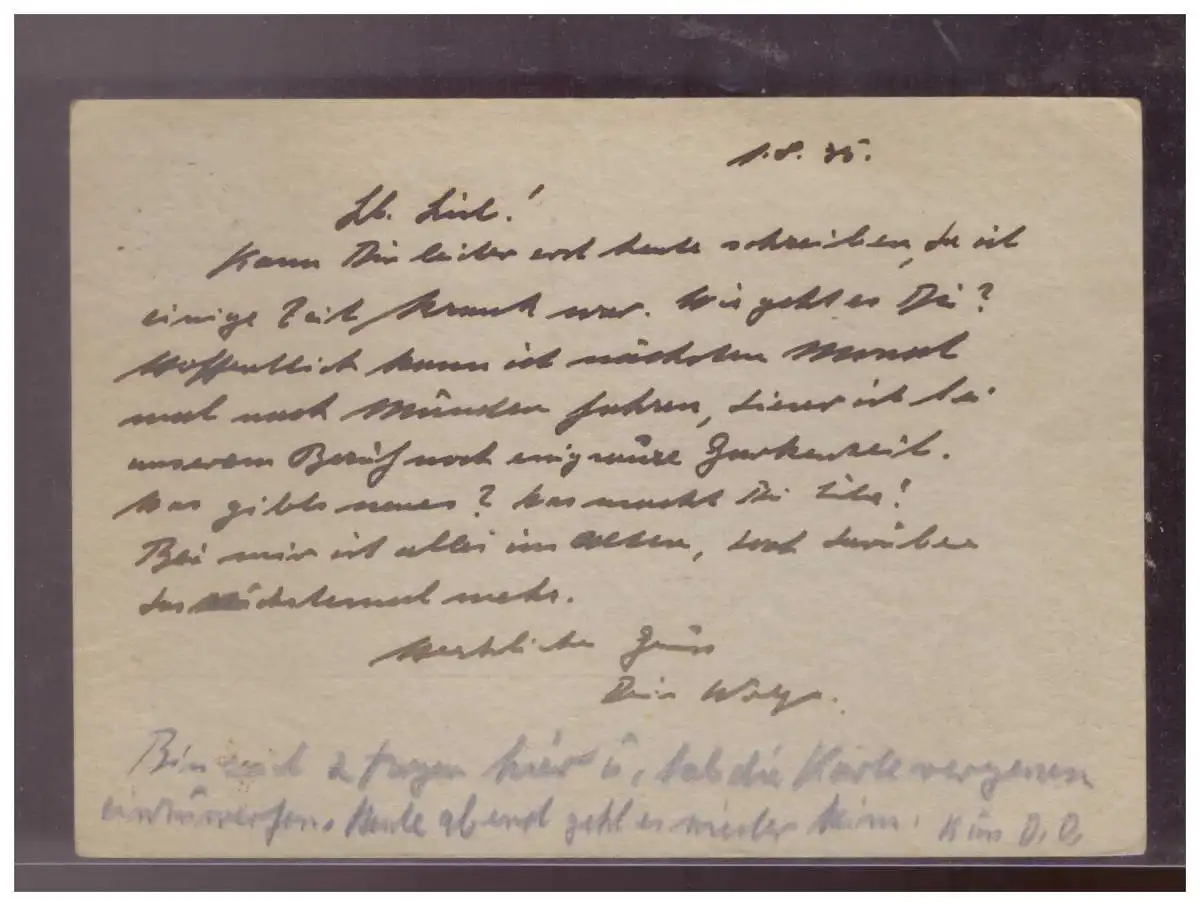 1.8.35.
Lb. Liesl!
Kann Dir leider erst heute schreiben, da ich
einige Zeit krank war. Wie geht es Dir?
Hoffentlich kann ich nächsten Monat
mal nach München fahren, da ich bei
unserem Beruf noch Gurkenzeit.
Was gibts neues? Was macht Die Liebe!
Bei mir ist alles im alten, doch darüber
das nächstemal mehr.
Herzlichen Gruss
Dein
Bin seit 2 Tagen hier u. hab die Karte vergessen
einzuwerfen. Heute abend geht es wieder heim.